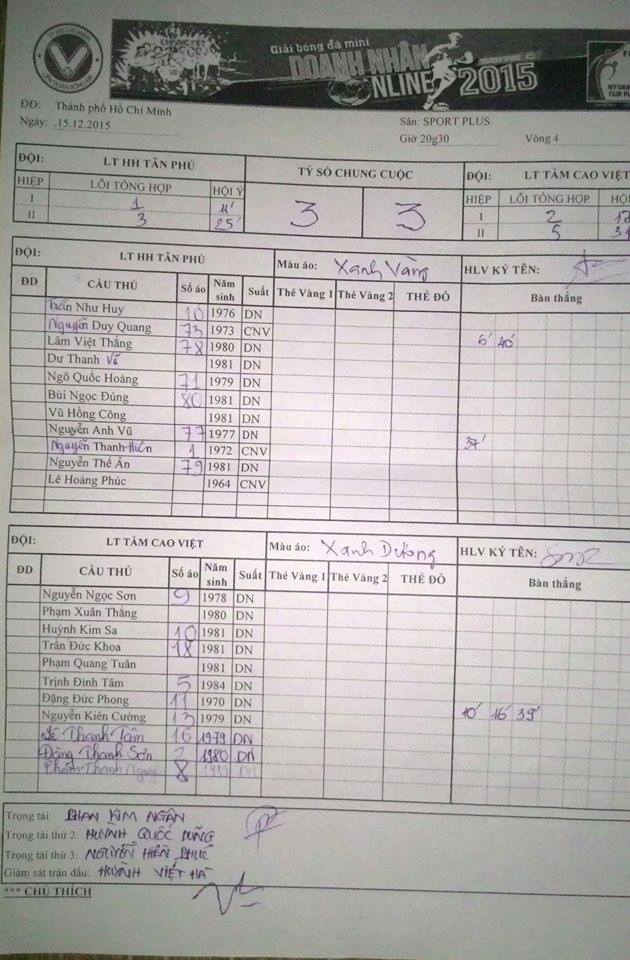 TP HỒ CHÍ MINH
LIÊN ĐOÀN BÓNG ĐÁ
Giải bóng đá mini
DOANH NHÂN
NLINE 2015
MYGAM
FAIR PL
ĐĐ: Thành phố Hồ Chí Minh
Ngày: 15.12.2015
Sân: SPORT PLUS
Giờ 20g30 Vòng 4
ĐỘI: LT HH TÂN PHÚ TỶ SỐ CHUNG CUỘC ĐỘI: LT TÀM CAO VIỆT
HIỆP LỖI TỔNG HỢP HỘI Ý 3 3 HIỆP LỖI TỔNG HỢP HỘI
I 1 11' I 2
II 3 25' II 5
ĐỘI: LT HH TÂN PHÚ Màu áo: Xanh Vàng HLV KÝ TÊN:
ĐD CẦU THỦ Số áo Năm sinh Suất Thẻ Vàng 1 Thẻ Vàng 2 THẺ ĐỎ Bàn thắng
Trần Như Huy 10 1976 DN
Nguyễn Duy Quang 73 1973 CNV
Lâm Việt Thắng 78 1980 DN 6' 40'
Dư Thanh Vũ 1981 DN
Ngô Quốc Hoàng 71 1979 DN
Bùi Ngọc Đúng 80 1981 DN
Vũ Hồng Công 1981 DN
Nguyễn Anh Vũ 77 1977 DN 37'
Nguyễn Thanh Hiền 1 1972 CNV
Nguyễn Thế Ân 79 1981 DN
Lê Hoàng Phúc 1964 CNV
ĐỘI: LT TÀM CAO VIỆT Màu áo: Xanh Dương HLV KÝ TÊN:
ĐD CẦU THỦ Số áo Năm sinh Suất Thẻ Vàng 1 Thẻ Vàng 2 THẺ ĐỎ Bàn thắng
Nguyễn Ngọc Sơn 9 1978 DN
Phạm Xuân Thắng 1980 DN
Huỳnh Kim Sa 10 1981 DN
Trần Đức Khoa 18 1981 DN
Phạm Quang Tuân 1981 DN
Trịnh Đình Tâm 5 1984 DN
Đặng Đức Phong 11 1970 DN
Nguyễn Kiên Cường 13 1979 DN 10' 16' 39'
Lê Thanh Tâm 16 1979 DN
Đặng Thanh Sơn 2 1980 DN
Phạm Thanh 8 DN
Trọng tài: PHAN KIM NGÂN
Trọng tài thứ 2: HUỲNH QUỐC DŨNG
Trọng tài thứ 3: NGUYỄN HIỀN PHÚC
Giám sát trận đấu: HUỲNH VIỆT HÀ
*** CHÚ THÍCH